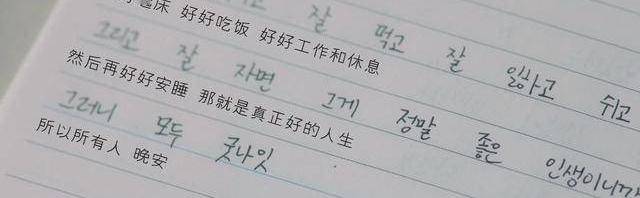 잘 먹고 잘 일하고 쉬고
床 好好吃饭 好好工作和休息
그리고 잘 자면 그게 정말 좋은 인생이니까
然后再好好安睡 那就是真正好的人生
그러니 모두 굿나잇
所以所有人 晚安